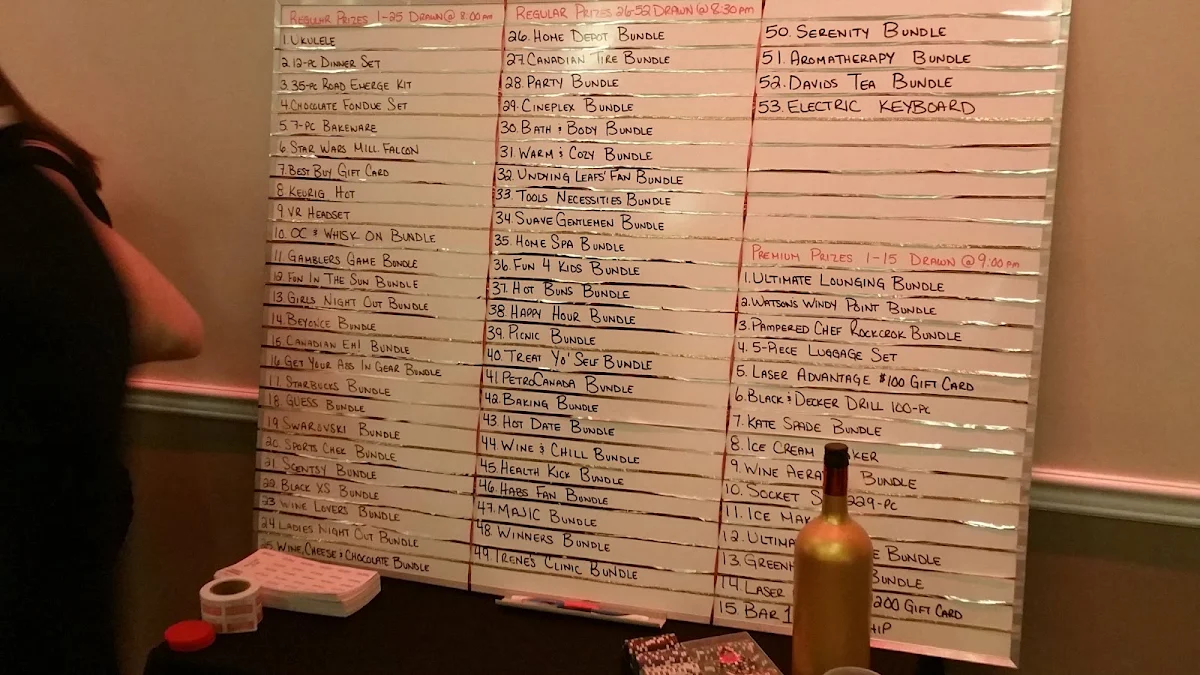 REGULAR PRIZES 1-25 DRAWN @ 8:00 pm
1. UKULELE
2. 12-PC DINNER SET
3. 35-PC ROAD EMERGE KIT
4. CHOCOLATE FONDUE SET
5. 7-PC BAKEWARE
6. STAR WARS MILL. FALCON
7. BEST BUY GIFT CARD
8. KEURIG HOT
9. VR HEADSET
10. OC & WHISK ON BUNDLE
11. GAMBLERS GAME BUNDLE
12. FUN IN THE SUN BUNDLE
13. GIRLS NIGHT OUT BUNDLE
14. BEYONCE BUNDLE
15. CANADIAN EH! BUNDLE
16. GET YOUR ASS IN GEAR BUNDLE
17. STARBUCKS BUNDLE
18. GUESS BUNDLE
19. SWAROVSKI BUNDLE
20. SPORTS CHEK BUNDLE
21. SCENTSY BUNDLE
22. BLACK XS BUNDLE
23. WINE LOVERS BUNDLE
24. LADIES NIGHT OUT BUNDLE
WINE, CHEESE & CHOCOLATE BUNDLE
REGULAR PRIZES 26-52 DRAWN @ 8:30 pm
26. HOME DEPOT BUNDLE
27. CANADIAN TIRE BUNDLE
28 PARTY BUNDLE
29. CINEPLEX BUNDLE
30. BATH & BODY BUNDLE
31 WARM & COZY BUNDLE
32. UNDYING LEAFS' FAN BUNDLE
33. TOOLS NECESSITIES BUNDLE
34. SUAVE GENTLEMEN BUNDLE
35. HOME SPA BUNDLE
36. FUN 4 KIDS BUNDLE
37. HOT BUNS BUNDLE
38 HAPPY HOUR BUNDLE
39. PICNIC BUNDLE
40 TREAT YO' SELF BUNDLE
41 PETROCANADA BUNDLE
42. BAKING BUNDLE
43. HOT DATE BUNDLE
44. WINE & CHILL BUNDLE
45. HEALTH KICK BUNDLE
46. HABS FAN BUNDLE
47. MAJIC BUNDLE
48 WINNERS BUNDLE
49. IRENE'S CLINIC BUNDLE
50. SERENITY BUNDLE
51. AROMATHERAPY BUNDLE
52. DAVIDS TEA BUNDLE
53. ELECTRIC KEYBOARD
PREMIUM PRIZES 1-15 DRAWN @ 9:00 pm
1. ULTIMATE LOUNGING BUNDLE
2. WATSONS WINDY POINT BUNDLE
3. PAMPERED CHEF ROCKCROK BUNDLE
4. 5-PIECE LUGGAGE SET
5. LASER ADVANTAGE $100 GIFT CARD
6. BLACK & DECKER DRILL 100-PC
7. KATE SPADE BUNDLE
8. ICE CREAM
9. WINE BUNDLE
10. SOCKET 229-PC
11. ICE
12. BUNDLE
13. BUNDLE
14. LASER 200 GIFT CARD
15. BAR